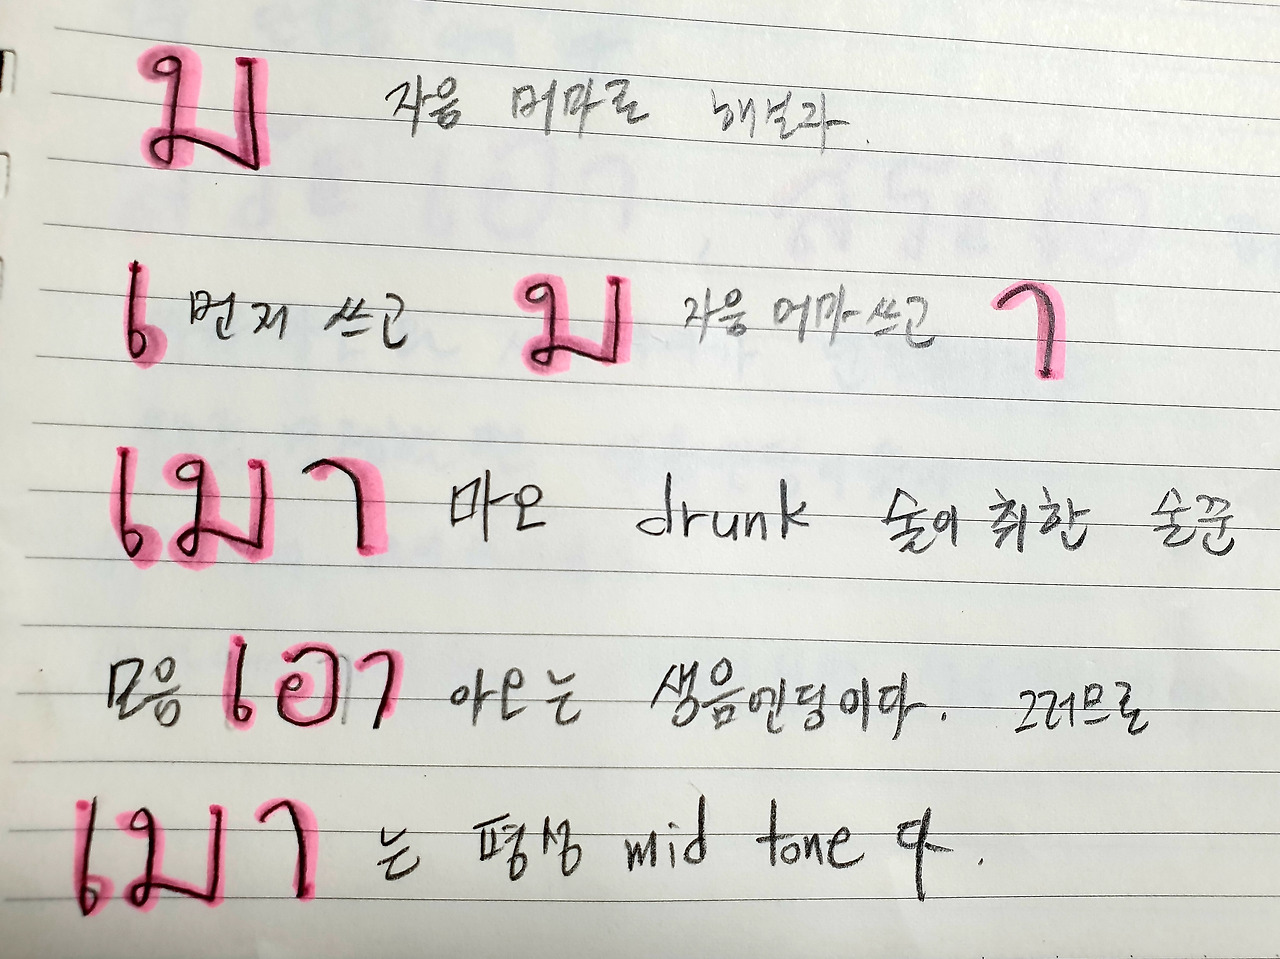 ม 자음 머마로 해보라.
เ 먼저 쓰고 ม 자음 머마 쓰고 า
เมา 마오 drunk 술에 취한 술꾼
모음 เอา 아오는 생음엔딩이다. 그러므로
เมา 는 평성 mid tone 다.